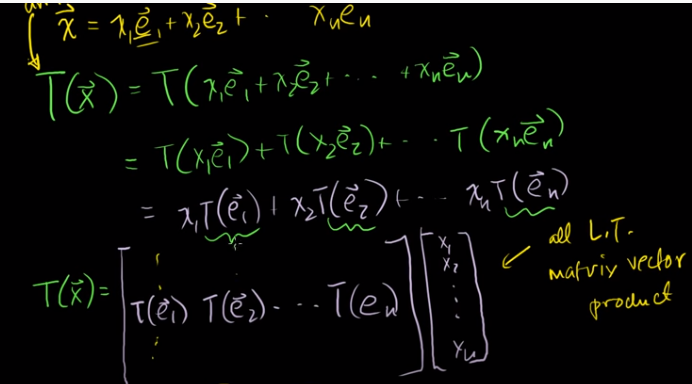 x⃗ = x₁e⃗₁ + x₂e⃗₂ + · xₙeₙ
T(x⃗) = T(x₁e⃗₁ + x₂e⃗₂ + ··· + xₙe⃗ₙ)
= T(x₁e⃗₁) + T(x₂e⃗₂) + ·· T(xₙe⃗ₙ)
= x₁T(e⃗₁) + x₂T(e⃗₂) + ·· xₙT(e⃗ₙ)
T(x⃗) = [T(e⃗₁) T(e⃗₂) · ·· T(eₙ)] [x₁ x₂ ⋮ xₙ]
all L.T.
matrix vector
product